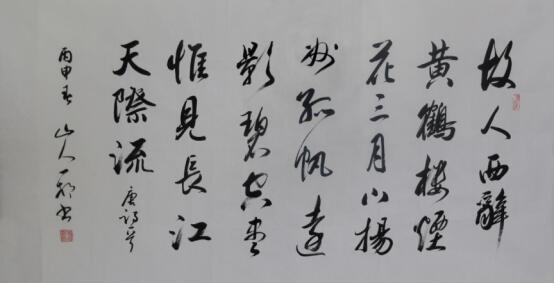 故人西辭
黃鶴樓煙
花三月下揚
州孤帆遠
影碧空盡
惟見長江
天際流
唐詩
丙申春 山人一 書